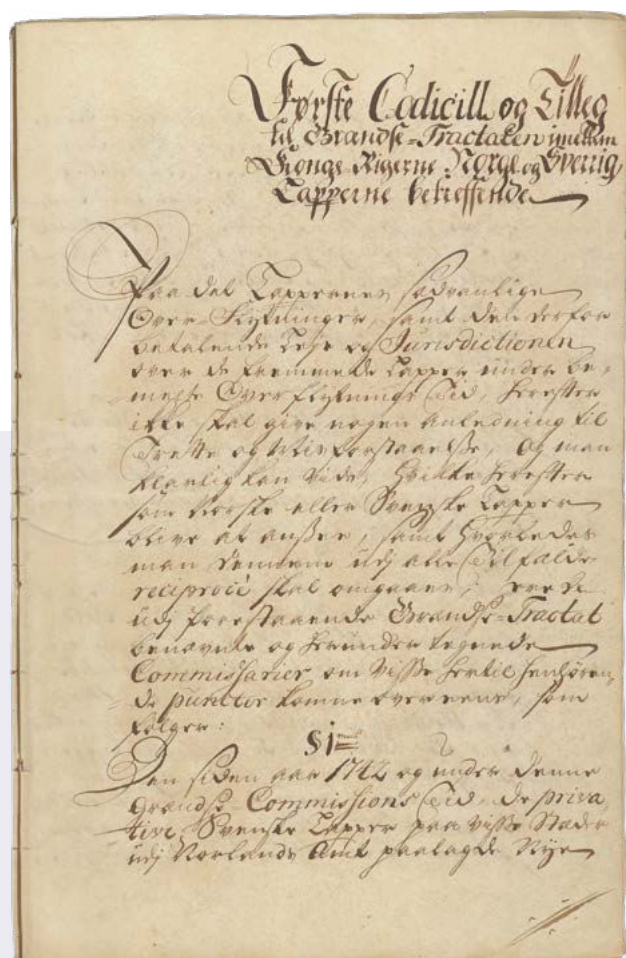 Første Codicill og Tilleg
til Grændse-Tractaten imellem
Konge Rigerne Norge og Sverrig
Lapperne betreffende
Paa det Lappernes sædvanlige
Over-Flytninger, samt den derfor
betalende Leye og Jurisdictionen
over de fremmede Lapper under be-
melte Overflytnings Tid, herefter
ikke skal give nogen anledning til
Trætte og Misforstaaelse, Og man
klarlig kan vide, hvilke herefter
som Norske eller Svenske Lapper
blive at ansee, samt hvorledes
man dennem udj alle Tilfælde
reciprocè skal omgaaes; ere de
udj forestaaende Grændse-Tractat
benævnte og herunder tegnede
Commissarier om visse hertil henhøren-
de puncter komne overeens, som
følger:
§ 1
Den siden aar 1742 og under denne
Grændse-Commissions Tid, de priva-
tive Svenske Lapper paa visse Stæder
udj Norlands Amt paalagde Nye